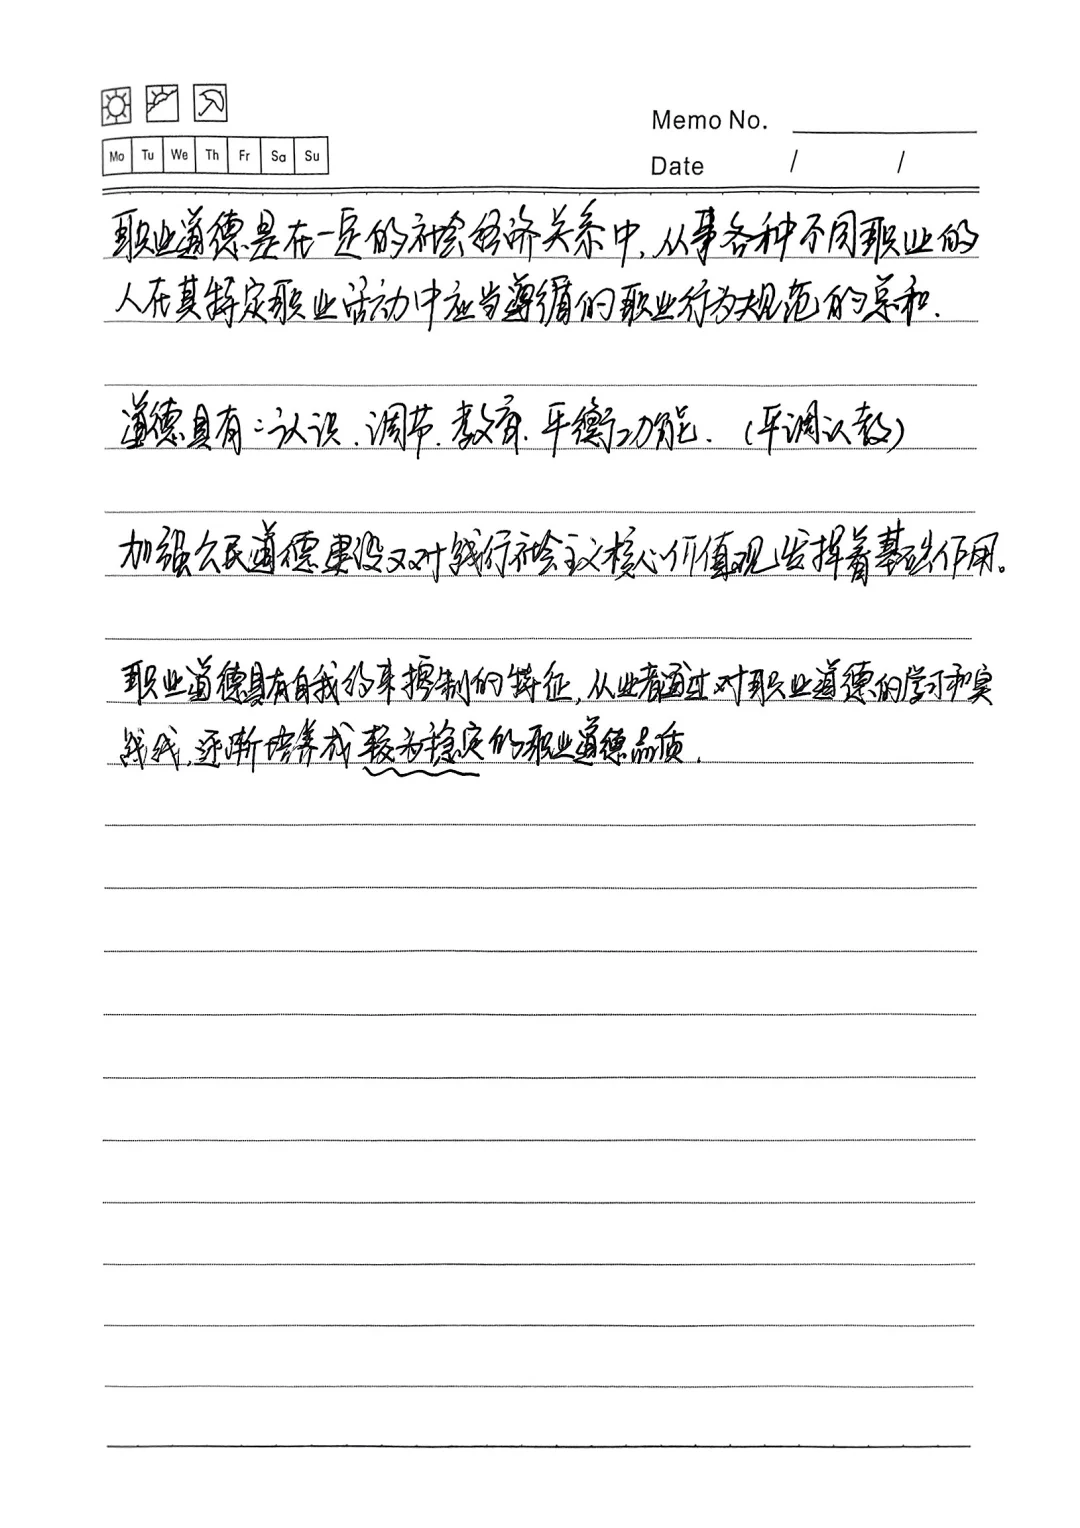 Memo No.
Mo Tu We Th Fr Sa Su
Date / /
职业道德是在一定的社会经济关系中,从事各种不同职业的
人在其特定职业活动中应当遵循的职业行为规范的总和.
道德具有:认识.调节.教育.平衡功能.(平调认教)
加强公民道德建设对践行社会主义核心价值观发挥着基础作用。
职业道德具有自我约束控制的特征,从业者通过对职业道德的学习和实
践,逐渐培养成较为稳定的职业道德品质.